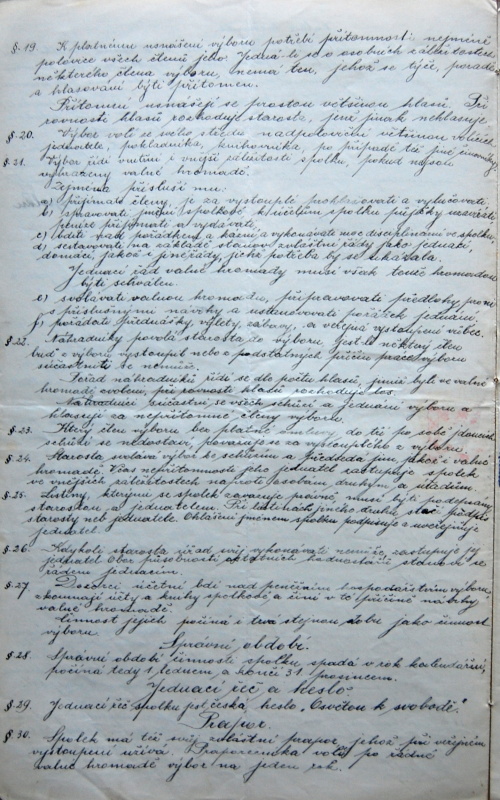 §. 19. K platnému usnášení výboru potřebí přítomnosti nejméně
polovice všech členů jeho. Jedná-li se o osobních záležitostech
některého člena výboru, nemá ten, jehož se týče, poradě
a hlasování býti přítomen.
Přítomní usnášejí se prostou většinou hlasů. Při
rovnosti hlasů rozhoduje starosta, jenž jinak nehlasuje.
§. 20. Výbor volí ze svého středu nadpoloviční většinou
jednatele, pokladníka, knihovníka, po případě též jiné
§. 21. Výbor řídí vnitřní i vnější záležitosti spolku, pokud nejsou
vyhraženy valné hromadě.
Zejména přísluší mu:
a) přijímati členy, je za vystouplé prohlašovati a vylučovati,
b) spravovati jmění spolkové k účelům spolku půjčky uzavírati
peníze přijímati a vydávati,
c) bdíti nad pořádkem a kázní a vykonávati moc disciplinární ve spolku
d) sestavovati na základě stanov zvláštní řády jako jednací,
domácí, jakož i jiné řády, jichž potřeba by se ukázala.
Jednací řád valné hromady musí však touže hromadou
býti schválen.
e) svolávati valnou hromadu, připravovati předlohy pro ni
s příslušnými návrhy a ustanovovati pořádek jednání,
f) pořádati přednášky, výlety, zábavy, a veřejná vystoupení vůbec.
§. 22. Náhradníky povolá starosta do výboru, jest-li některý člen
buď z výboru vystoupil nebo z podstatných příčin prací výboru
súčastniti se nemůže.
Pořad náhradníků řídí se dle počtu hlasů, jimiž byli ve valné
hromadě zvoleni; při rovnosti hlasů rozhoduje los.
Náhradníci súčastní se všech schůzí a jednání výboru a
hlasují za nepřítomné členy výboru.
§. 23. Který člen výboru bez platné omluvy do tří po sobě jdoucích
schůzí se nedostaví, považuje se za vystouplého z výboru
§. 24. Starosta svolává výbor ke schůzím a předsedá jim jakož i valné
hromadě. V čas nepřítomnosti jeho jednatel zastupuje spolek
ve vnějších záležitostech naproti osobám druhým a úřadům.
§. 25. Listiny, kterými se spolek zavazuje právně, musí býti podepsány
starostou a jednatelem. Při listinách jiného druhu stačí podpis
starosty neb jednatele. Ohlášení jménem spolku podpisuje a uveřejňuje
jednatel.
§. 26. Kdykoli starosta úřad svůj vykonávati nemůže, zastupuje jej
jednatel. Obor působnosti ostatních hodnostářů stanoví se
řádem jednacím.
§. 27 Dozorci účetní bdí nad peněžním hospodářstvím výboru,
zkoumají účty a knihy spolkové a činí v té příčině návrhy
valné hromadě.
Činnost jejich počíná i trvá stejnou dobu jako činnost
výboru.
Správní období.
§. 28. Správní období činnosti spolku spadá v rok kalendářní,
počíná tedy 1. lednem a končí 31. prosincem.
Jednací řeč a heslo.
§. 29. Jednací řeč spolku jest česká, heslo „Osvětou k svobodě“.
Prapor.
§. 30. Spolek má též svůj zvláštní prapor, jehož při veřejném
vystoupení užívá. Praporečníka volí po řádné
valné hromadě výbor na jeden rok.